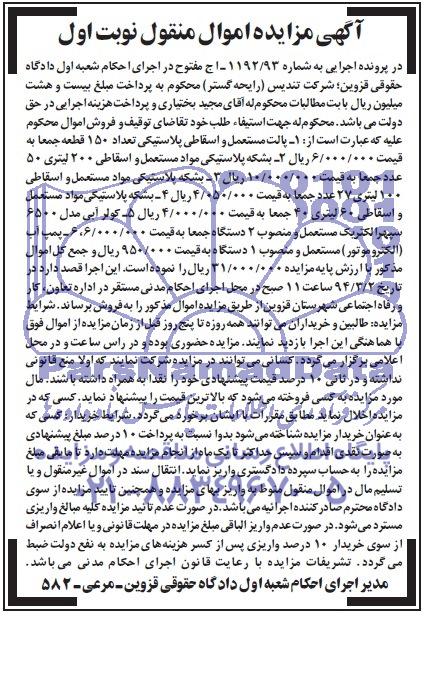 آگهی مزایده اموال منقول نوبت اول
در پرونده اجرایی به شماره ۱۱۹۲/۹۳ - ا ج مفتوح در اجرای احکام شعبه اول دادگاه
حقوقی قزوین؛ شرکت تندیس (رایحه گستر) محکوم به پرداخت مبلغ بیست و هشت
میلیون ریال بابت مطالبات محکوم له آقای مجید بختیاری و پرداخت هزینه اجرایی در حق
دولت می باشد. محکوم له جهت استیفاء طلب خود تقاضای توقیف و فروش اموال محکوم
علیه که عبارت است از: ۱ - پالت مستعمل و اسقاطی پلاستیکی تعداد ۱۵۰ قطعه جمعا به
قیمت ۶/۰۰۰/۰۰۰ ریال ۲ - بشکه پلاستیکی مواد مستعمل و اسقاطی ۲۰۰ لیتری ۵۰
عدد جمعا به قیمت ۱۰/۰۰۰/۰۰۰ ریال ۳ - بشکه پلاستیکی مواد مستعمل و اسقاطی
۱۰۰ لیتری ۲۷ عدد جمعا به قیمت ۴/۰۵۰/۰۰۰ ریال ۴ - بشکه پلاستیکی مواد مستعمل
و اسقاطی ۶۰ لیتری ۴۰ جمعا به قیمت ۴/۰۰۰/۰۰۰ ریال ۵ - کولر آبی مدل ۶۵۰۰
سپهر الکتریک مستعمل و منصوب ۲ دستگاه جمعا به قیمت ۶/۰۰۰/۰۰۰ ۶ - پمپ آب
(الکتروموتور) مستعمل و منصوب ۱ دستگاه به قیمت ۹۵۰/۰۰۰ ریال و جمع کل اموال
مذکور با ارزش پایه مزایده ۳۱/۰۰۰/۰۰۰ ریال را نموده است. این اجرا قصد دارد در
تاریخ ۹۴/۳/۲ ساعت ۱۱ صبح در محل اجرای احکام مدنی مستقر در اداره تعاون، کار
و رفاه اجتماعی شهرستان قزوین از طریق مزایده اموال مذکور را به فروش برساند. شرایط
مزایده: طالبین و خریداران می توانند همه روزه تا پنج روز قبل از زمان مزایده از اموال فوق
با هماهنگی این اجرا بازدید نمایند. مزایده حضوری بوده و در راس ساعت و در محل
اعلامی برگزار می گردد. کسانی می توانند در مزایده شرکت نمایند که اولا منع قانونی
نداشته و در ثانی ۱۰ درصد قیمت پیشنهادی خود را نقدا به همراه داشته باشند. مال
مورد مزایده به کسی فروخته می شود که بالاترین قیمت را پیشنهاد نماید. کسی که در
مزایده اخلال نماید مطابق مقررات با ایشان برخورد می گردد. شرایط خریدار: کسی که
به عنوان خریدار مزایده شناخته می شود بدوا نسبت به پرداخت ۱۰ درصد مبلغ پیشنهادی
به صورت نقدی اقدام و سپس حداکثر تا یک ماه از انجام مزایده مهلت دارد تا مابقی مبلغ
مزایده را به حساب سپرده دادگستری واریز نماید. انتقال سند در اموال غیر منقول و یا
تسلیم مال در اموال منقول منوط به واریز بهای مزایده و همچنین تایید مزایده از سوی
دادگاه محترم صادر کننده اجرائیه می باشد. در صورت عدم تائید مزایده کلیه مبالغ واریزی
مسترد می شود. در صورت عدم واریز الباقی مبلغ مزایده در مهلت قانونی و یا اعلام انصراف
از سوی خریدار ۱۰ درصد واریزی پس از کسر هزینه های مزایده به نفع دولت ضبط
می گردد. تشریفات مزایده با رعایت قانون اجرای احکام مدنی می باشد.
مدیر اجرای احکام شعبه اول دادگاه حقوقی قزوین - مرعی - ۵۸۲
ParsNamadData
۰۲۱-۸۸۳۴۹۶۷۰-۵